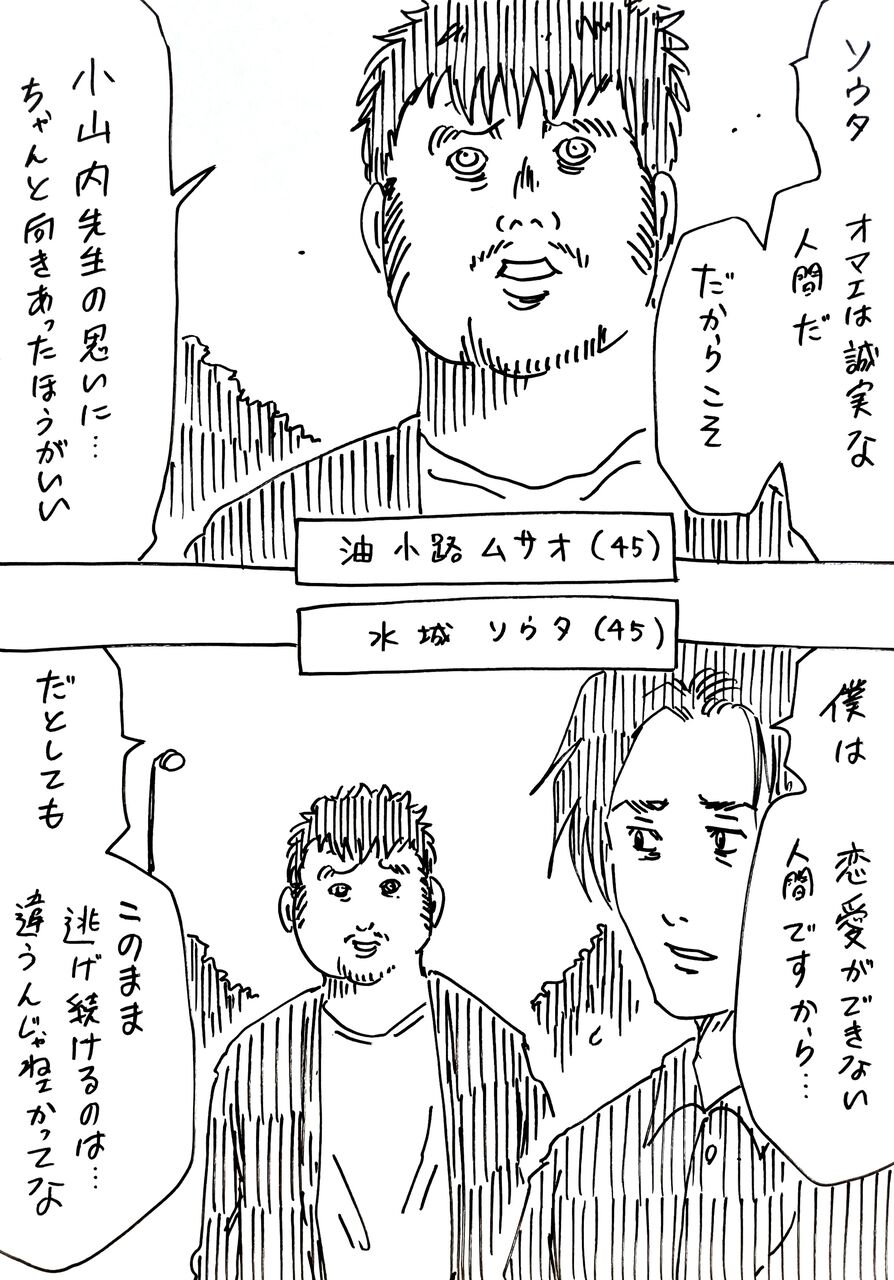 ソウタ
オマエは誠実な
人間だ
だからこそ
小山内先生の思いに…
ちゃんと向きあったほうがいい
油小路ムサオ(45)
水城ソウタ(45)
僕は
恋愛ができない
人間ですから…
だとしても
このまま
逃げ続けるのは…
違うんじゃねェかってな